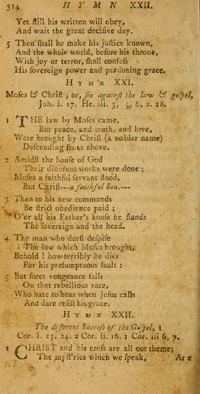 314 HYMN XXII.
Yet still his written will obey,
And wait the great decisive day.
5 Then shall he make his justice known,
And the whole world, before his throne,
With joy or terror, shall confess
His sovereign power and pardoning grace.
HYMN XXI.
Moses & Christ; or, sin against the law & gospel,
Joh. i. 17. He. iii. 3, 5, 6, x. 28.
1 THE law by Moses came,
But peace, and truth, and love,
Were brought by Christ (a nobler name)
Descending from above.
2 Amidst the house of God
Their different works were done;
Moses a faithful servant stood,
But Christ---a faithful Son.---
3 Then to his new commands
Be strict obedience paid;
O'er all his Father's house he stands
The sovereign and the head.
4 The man who durst despise
The law which Moses brought,
Behold! how terribly he dies
For his presumptuous fault:
5 But sorer vengeance falls
On that rebellious race,
Who hate to hear when Jesus calls
And dare resist his grace.
HYMN XXII.
The different Success of the Gospel, 1
Cor. i. 23, 24. 2 Cor. ii. 16. 1 Cor. iii 6, 7.
1 CHRIST and his cross are all our theme;
The mystries which we speak,
Are